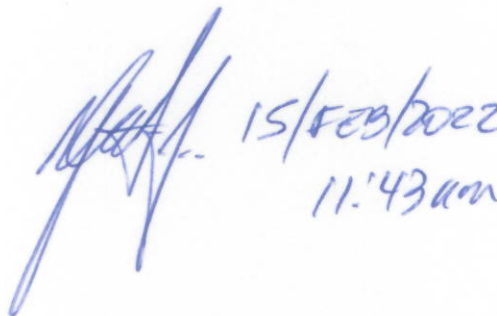 15/FEB/2022
11:43 am